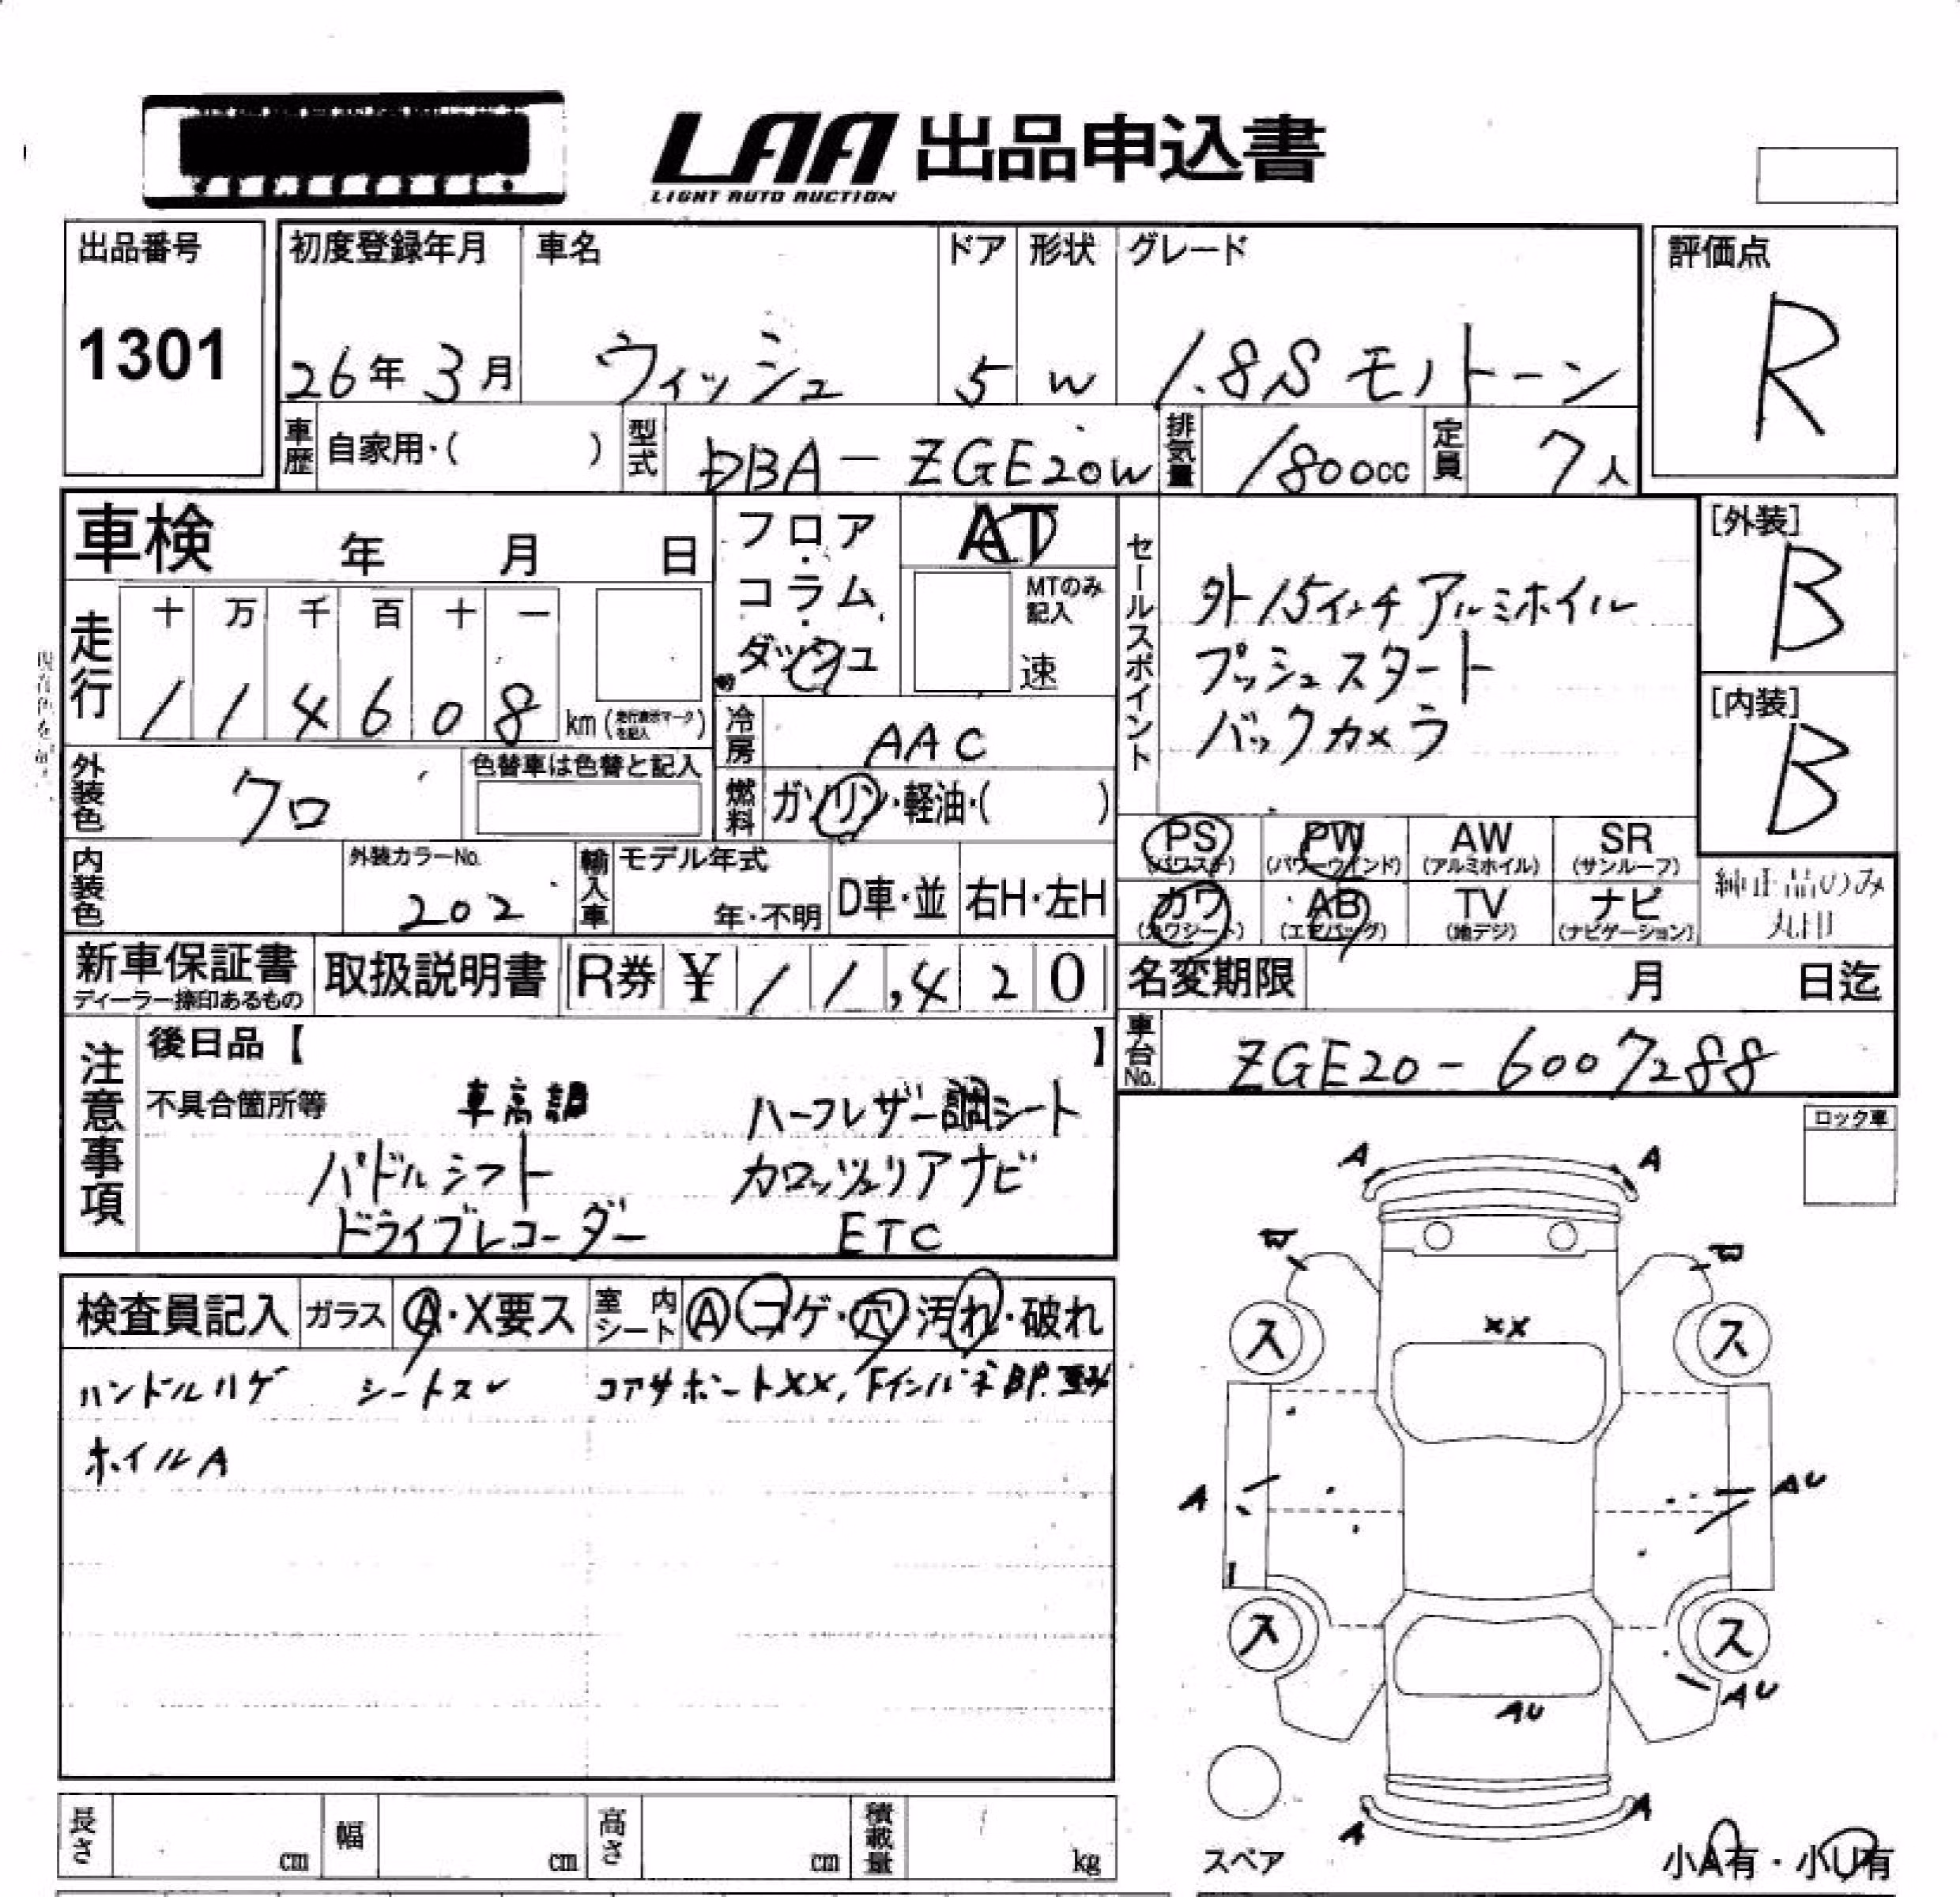 LAA 出品申込書
LIGHT AUTO AUCTION
出品番号
1301
初度登録年月
26年 3月
車名
ウィッシュ
ドア
5
形状
W
グレード
1.8S モノトーン
評価点
R
車歴 自家用・( )
型式 DBA-ZGE20W
排気量 1800cc
定員 7人
車検 年 月 日
フロア・コラム・ダッシュ
AT
MTのみ記入
速
走行
十 万 千 百 十 一
1 1 4 6 0 8 km (走行表示マークを記入)
冷房 AAC
燃料 ガソリン・軽油・( )
セールスポイント
外15インチアルミホイル
プッシュスタート
バックカメラ
[外装]
B
[内装]
B
外装色 クロ
色替車は色替と記入
内装色
外装カラーNo.
202
輸入車
モデル年式
年・不明
D車・並
右H・左H
PS (パワステ)
PW (パワーウインド)
AW (アルミホイル)
SR (サンルーフ)
カワ (カワシート)
AB (エアバッグ)
TV (地デジ)
ナビ (ナビゲーション)
純正品のみ
丸印
新車保証書
ディーラー捺印あるもの
取扱説明書
R券 ¥ 11,420
名変期限 月 日迄
車台No. ZGE20-6007288
注意事項
後日品【 】
不具合箇所等
車高調 ハーフレザー調シート
パドルシフト カロッツェリアナビ
ドライブレコーダー ETC
ロック車
検査員記入
ガラス A・X要ス
室内シート A コゲ・穴 汚れ・破れ
ハンドルハゲ シートスレ コアサポートXX,
ホイルA
A A
W W
XX
ス ス
A AU
ス ス
AU
AU
A A
スペア
小A有・小U有
長さ cm
幅 cm
高さ cm
積載量 kg